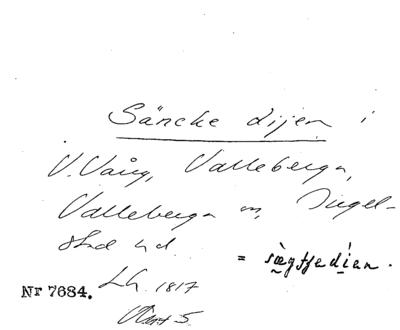 Säncke dijen i
V. Vång, Valleberga,
Valleberga sn, Ingel-
stad hd.
= sægtjedien.
Nr 7684. Lh. 1817